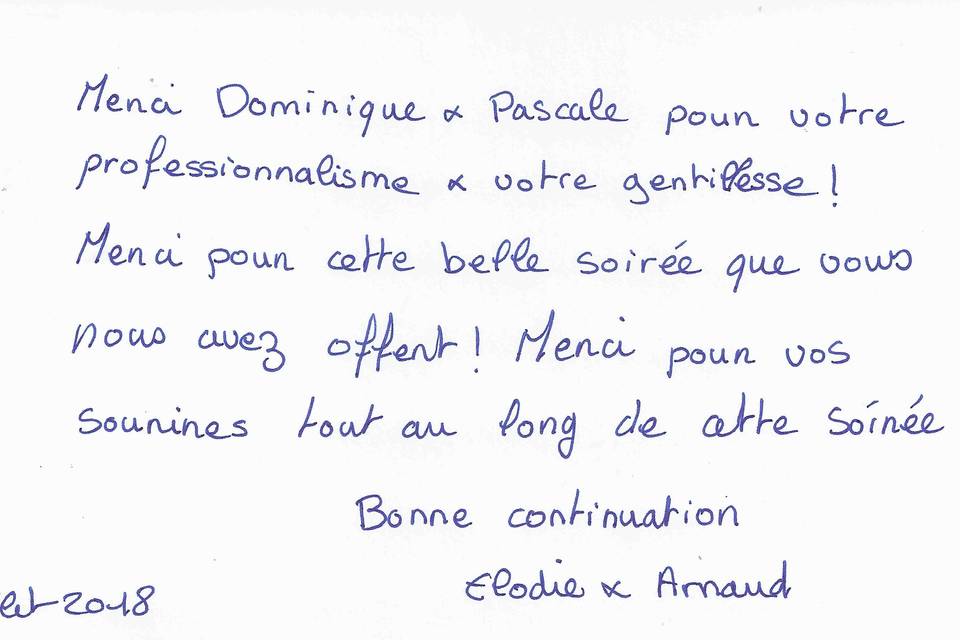 Merci Dominique & Pascale pour votre
professionnalisme & votre gentillesse !
Merci pour cette belle soirée que vous
nous avez offert ! Merci pour vos
sourires tout au long de cette soirée
Bonne continuation
Elodie & Arnaud
2018